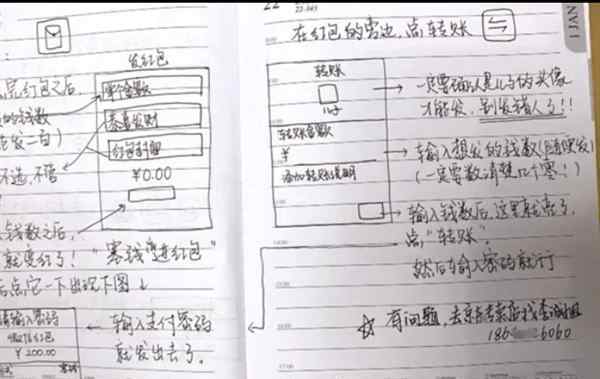 发红包
点完红包之后
单个金额
的钱数
恭喜发财
发一百)
红包封面
不选,不管
¥0.00
钱数之后,
就变红了!"塞钱进红包"
后点它一下出现下图↓
请输入密码
微信红包
¥200.00
← 输入支付密码
就发出去了。
22
JAN 1
在红包的旁边,点转账
转账
一定要确认是儿子的头像
才能发,别发错人了!!
儿子
转账金额
¥
输入想发的钱数
(一定要数清楚几个零!)
添加转账说明
输入钱数后,这里就亮了,
点"转账"。
然后输入密码就行
☆ 有问题,去京东专卖店找
186 6060